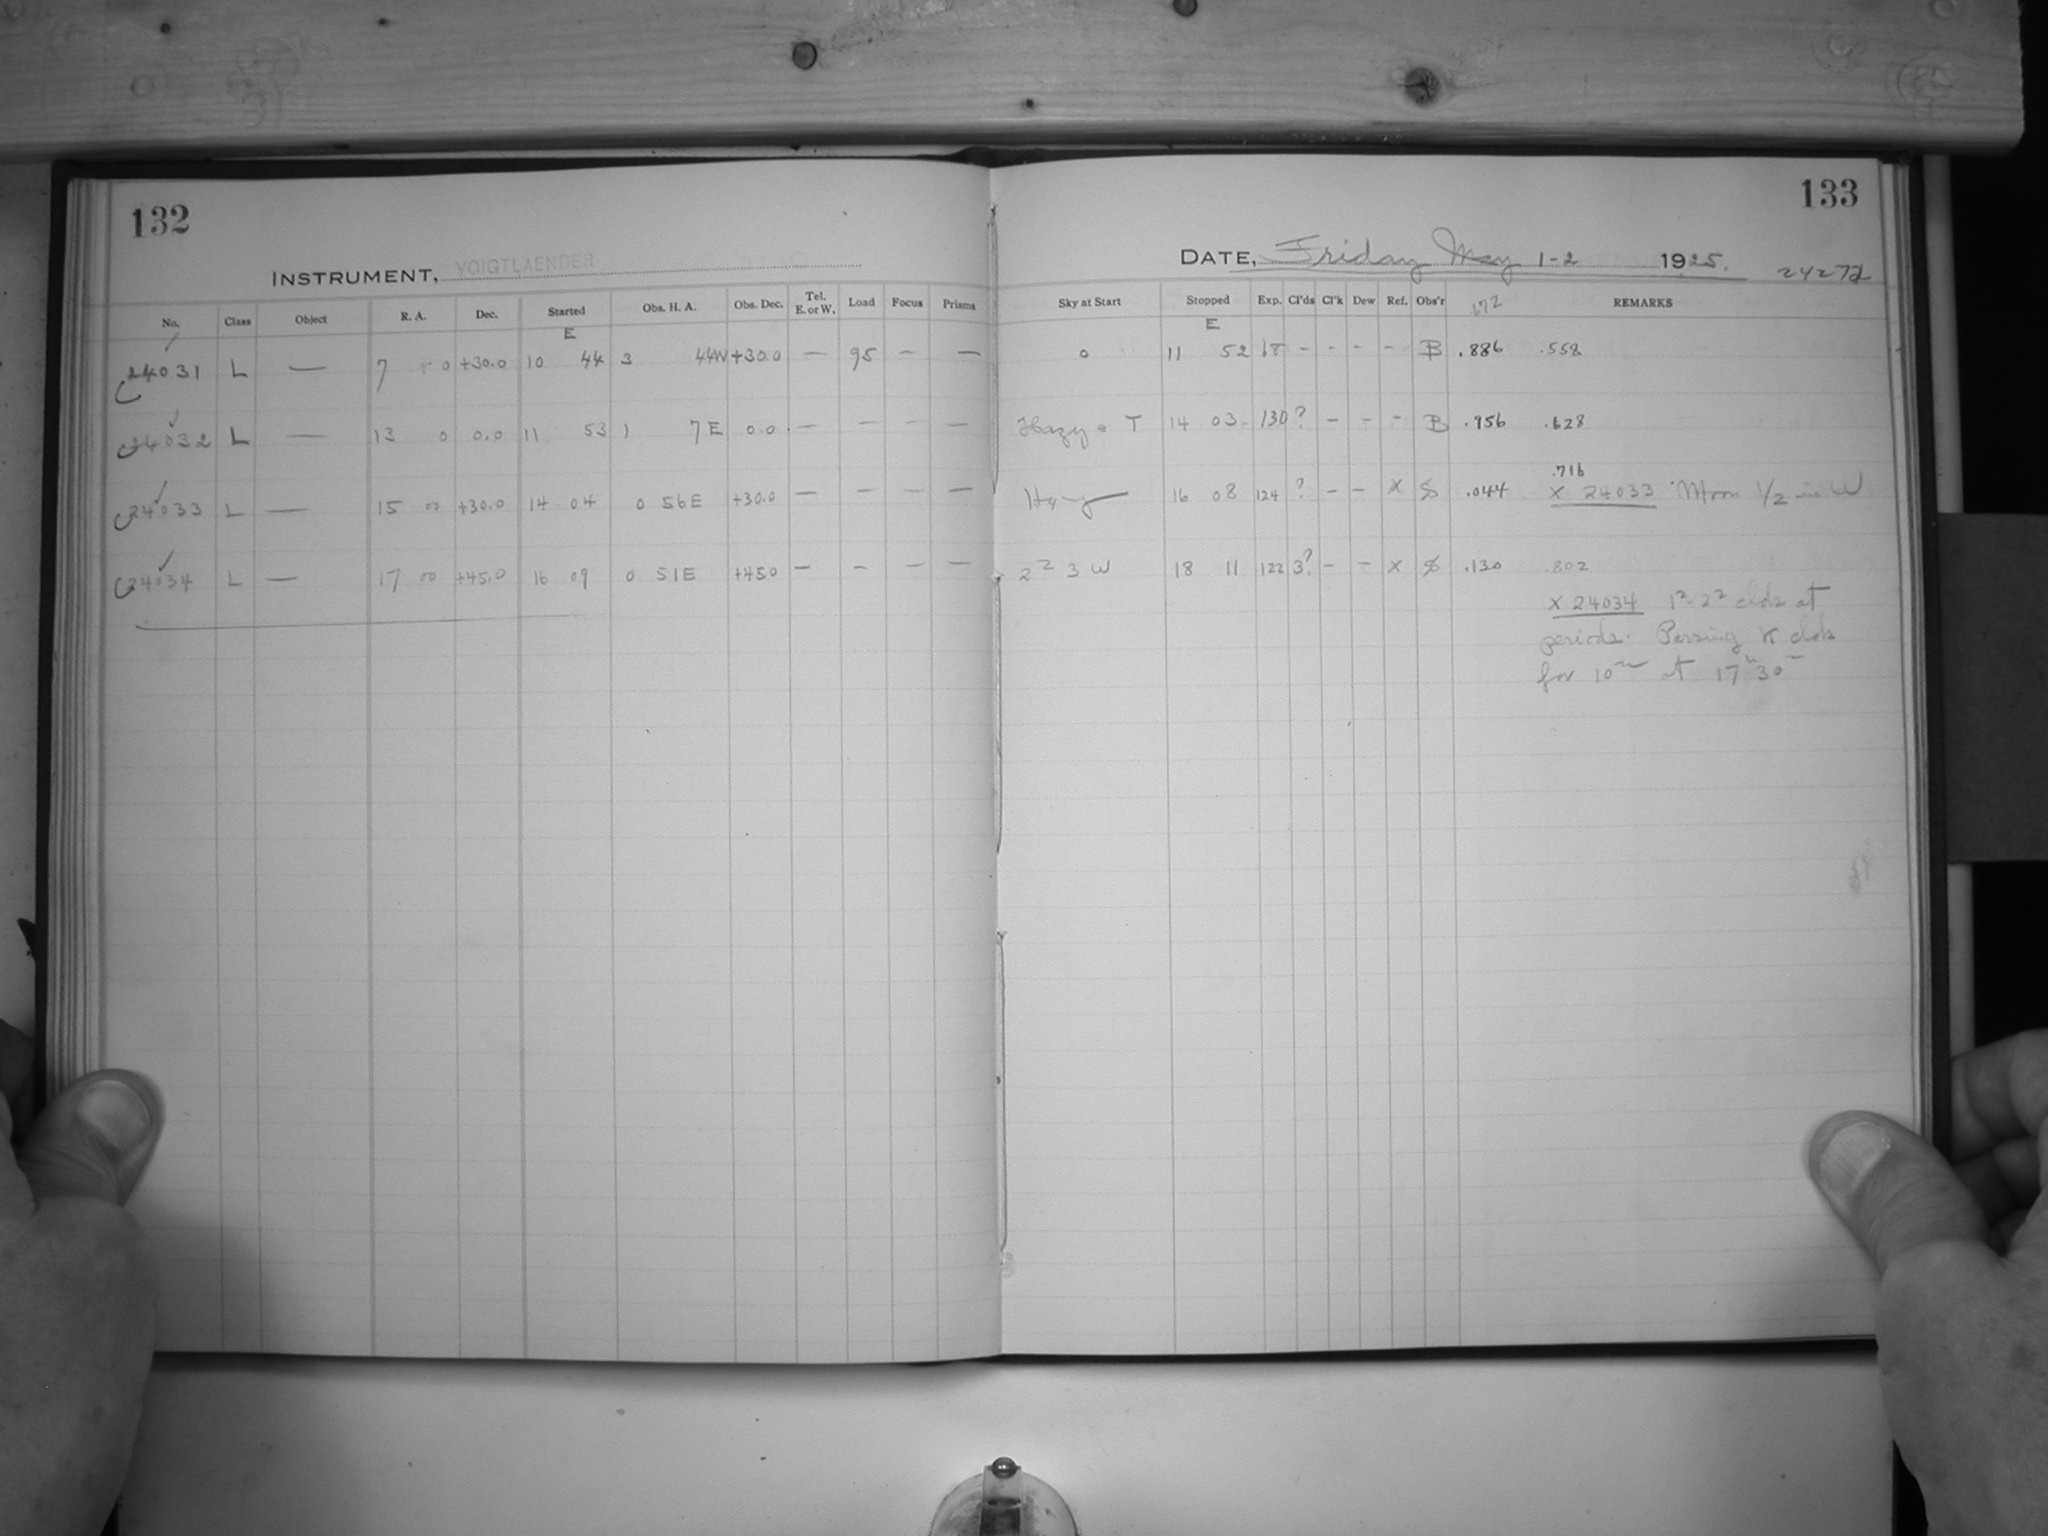 132
133
INSTRUMENT, VOIGTLAENDER
DATE, Friday May 1-2 1925. 24272
No. Class Object R. A. Dec. Started Obs. H. A. Obs. Dec. Tel. E. or W. Load Focus Prisms Sky at Start Stopped Exp. Cl'ds Cl'k Dew Ref. Obs'r 172 REMARKS
E E
24031 L — 7 0 +30.0 10 44 3 44W +30.0 — 95 — — 0 11 52 68 - - - - B .886 .558
24032 L — 13 0 0.0 11 53 1 7E 0.0 — — — — Hazy o T 14 03 130 ? - - - B .956 .628
.716
24033 L — 15 00 +30.0 14 04 0 56E +30.0 — — — — Hazy 16 08 124 ? - - X .044 X 24033 Moon 1/2 in W
24034 L — 17 00 +45.0 16 09 0 51E +45.0 — — — — 2² 3 W 18 11 122 3? - - X .130 .802
X 24034 1²-2² clds at
periods. Passing clds
for 10ᵐ at 17ʰ30ᵐ